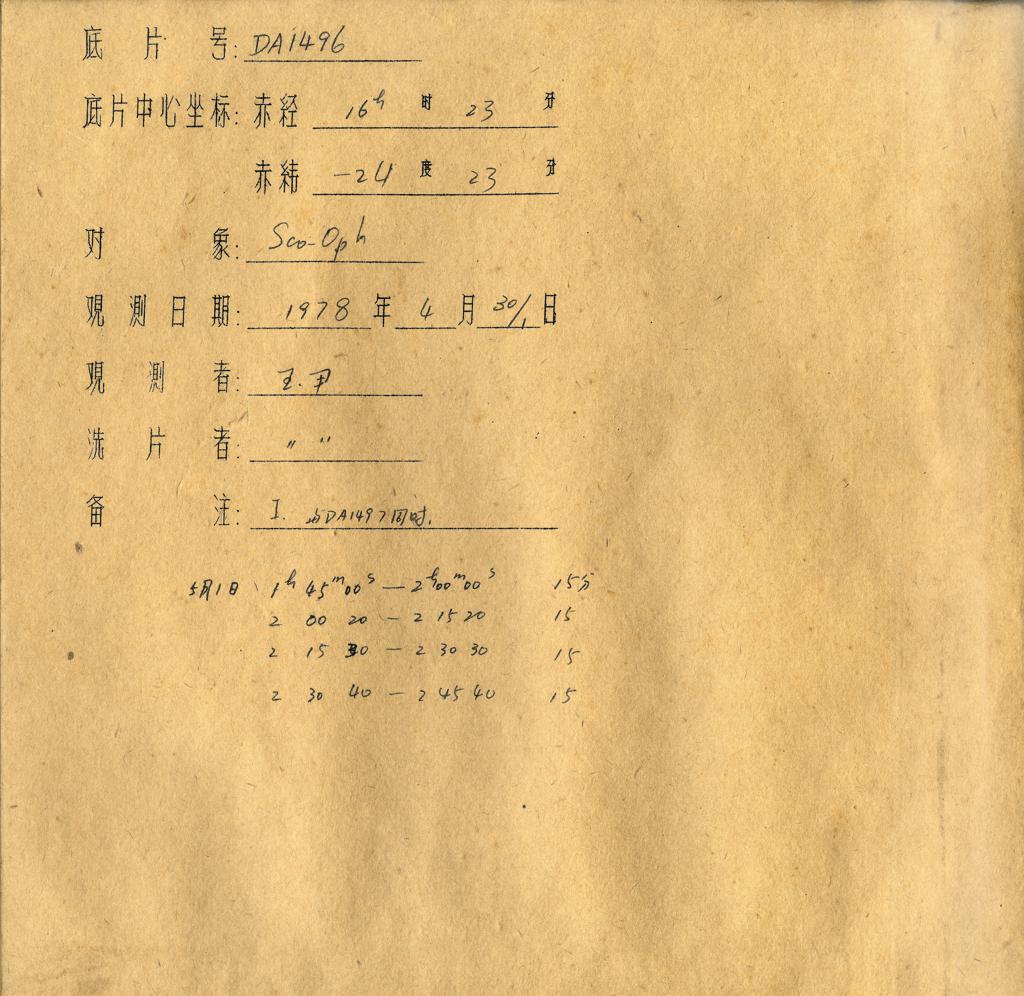 底片号: DA1496
底片中心坐标: 赤经 16h 时 23 分
赤纬 -24 度 23 分
对象: Sco-Oph
观测日期: 1978 年 4 月 30/1 日
观测者: 王.尹
洗片者: 〃 〃
备注: I. 与DA1497同时.
5月1日 1h 45m00s — 2h00m00s 15分
2 00 20 — 2 15 20 15
2 15 30 — 2 30 30 15
2 30 40 — 2 45 40 15